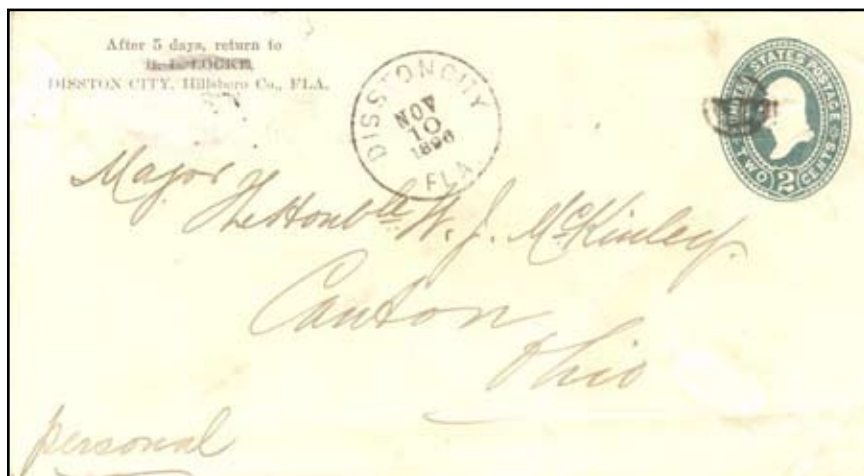 After 5 days, return to
LOCKE,
DISSTON CITY, Hillsboro Co., FLA.
DISSTON CITY
NOV
10
1896
FLA.
UNITED STATES POSTAGE
TWO 2 CENTS
Major
The Honble W. J. McKinley.
Canton
Ohio
personal